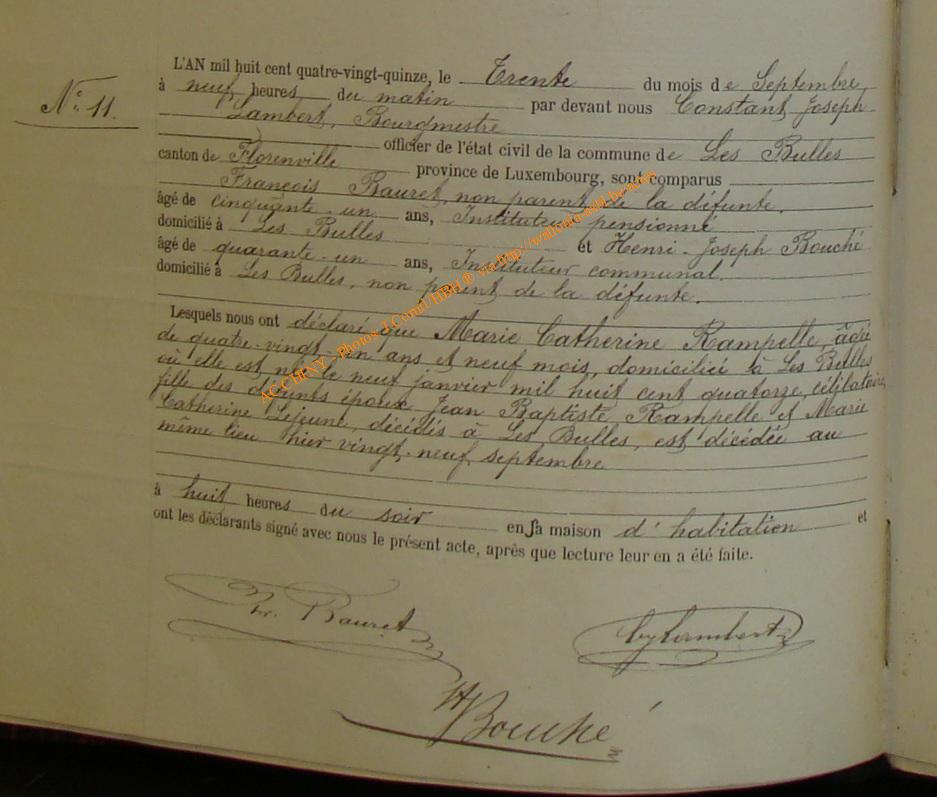 L'AN mil huit cent quatre-vingt-quinze, le Trente du mois de Septembre,
N° 11.
à neuf heures du matin par devant nous Constant Joseph
Lambert, Bourgmestre
officier de l'état civil de la commune de Les Bulles
canton de Florenville province de Luxembourg, sont comparus
François Bauret, non parent de la défunte,
âgé de cinquante-un ans, Instituteur pensionné
domicilié à Les Bulles et Henri-Joseph Bouché
âgé de quarante-un ans, Instituteur communal
domicilié à Les Bulles, non parent de la défunte.
Lesquels nous ont déclaré que Marie Catherine Rampelle, âgée
de quatre-vingt-un ans et neuf mois, domiciliée à Les Bulles
où elle est née le neuf janvier mil huit cent quatorze, célibataire,
fille des défunts époux Jean Baptiste Rampelle et Marie
Catherine Lejeune, décédés à Les Bulles, est décédée au
même lieu hier vingt-neuf septembre
à huit heures du soir en sa maison d'habitation et
ont les déclarants signé avec nous le présent acte, après que lecture leur en a été faite.
Fr. Bauret
Lambert
HBouché
ACCHINY - Photos J.Cornil/HBH® via http://wallonia-asbl.be